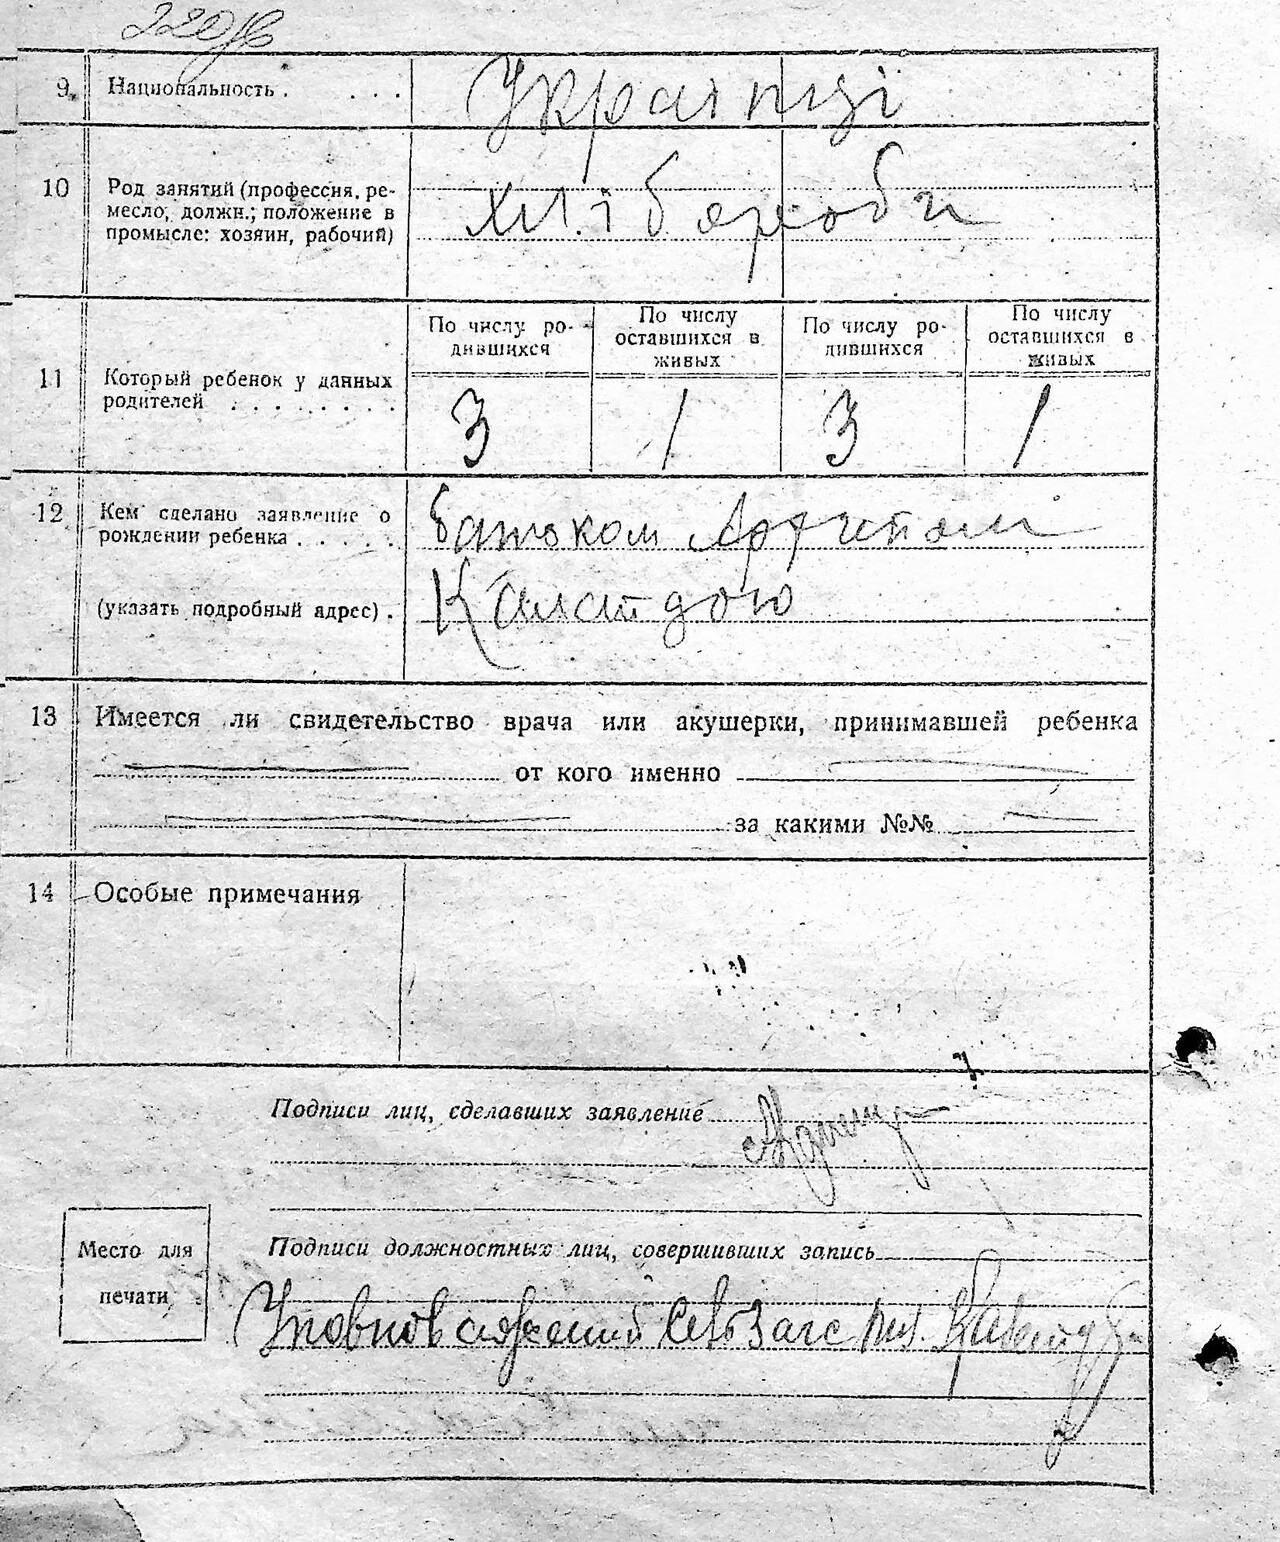 220зв
9. Национальность . . . . Українці
10 Род занятий (профессия, ре-
месло, должн.; положение в
промысле: хозяин, рабочий)
хлібороби
По числу ро-
дившихся
По числу
оставшихся в
живых
По числу ро-
дившихся
По числу
оставшихся в
живых
11 Который ребенок у данных
родителей . . . . . . . .
3 1 3 1
12 Кем сделано заявление о
рождении ребенка . . . . .
(указать подробный адрес) .
батьком
Калайдою
13 Имеется ли свидетельство врача или акушерки, принимавшей ребенка
от кого именно
за какими №№
14 Особые примечания
Подписи лиц, сделавших заявление
Место для
печати
Подписи должностных лиц, совершивших запись
Уповноважений Загс